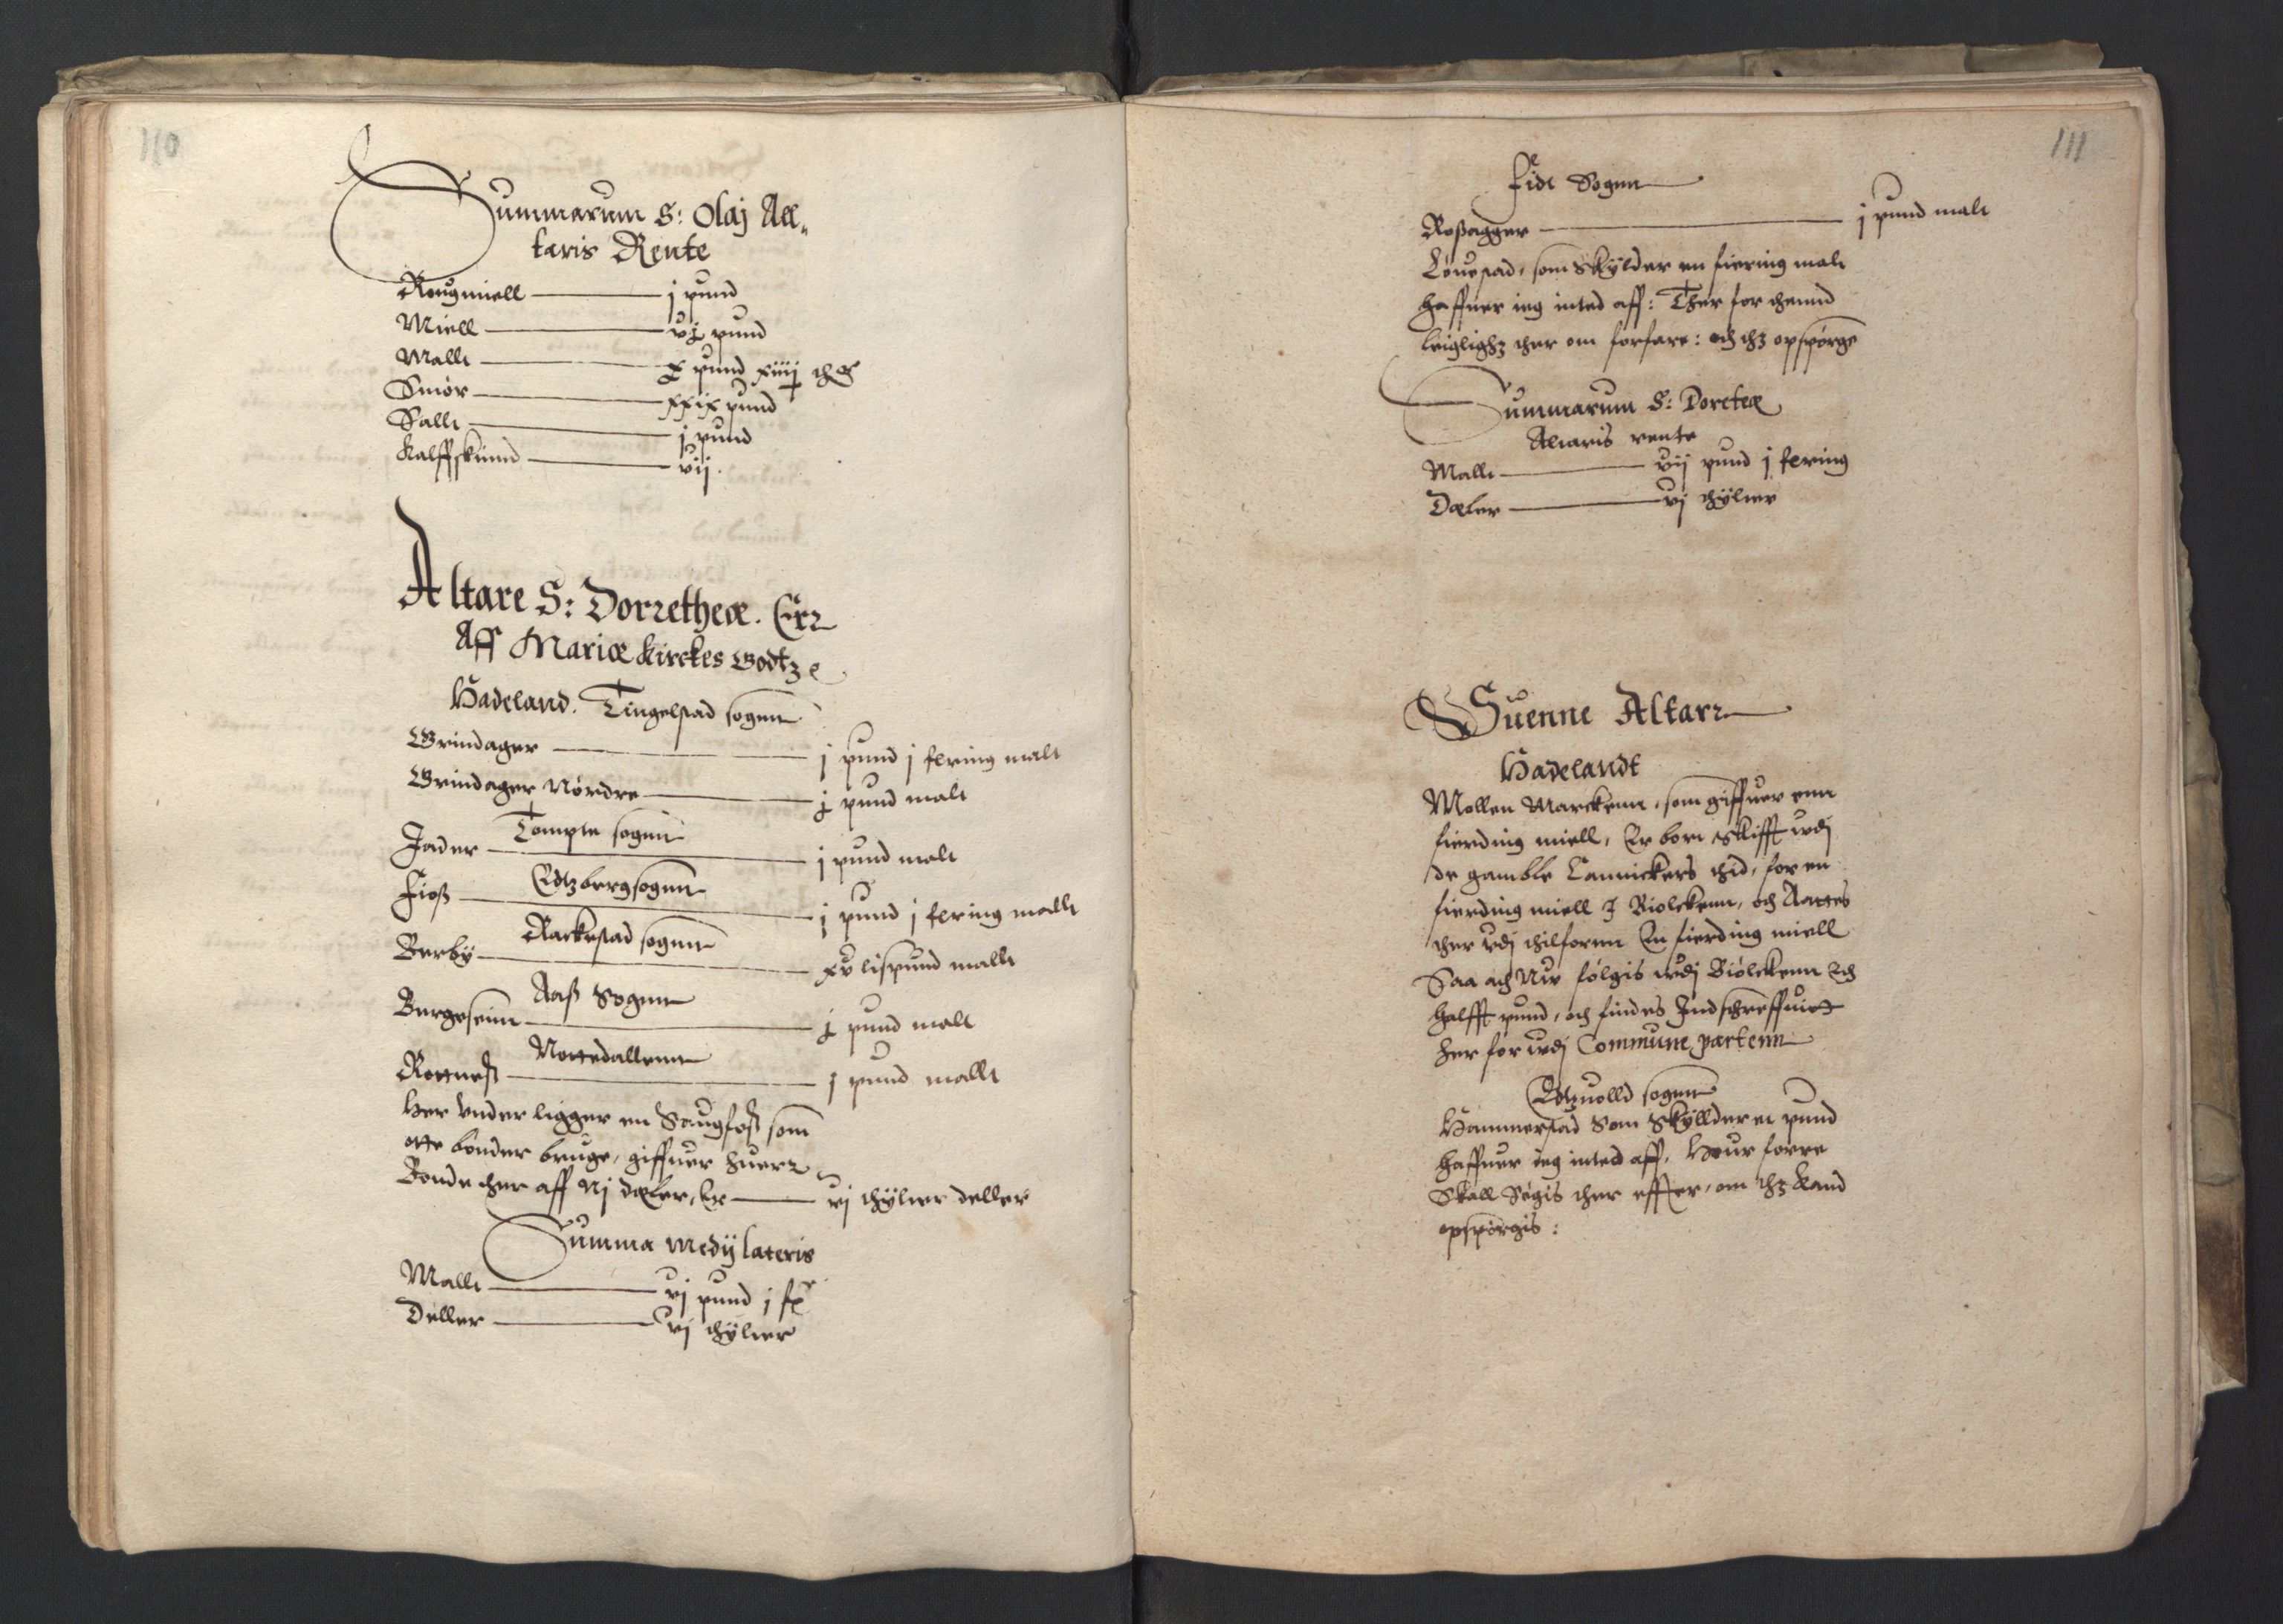 110
Summarum S: Olaj All„
taris Rente
Rougmiell — j pund
Miell — vj pund
Mallt — x pund xiiij
Smør — xxix pund
Sallt — j pund
Kalffskiind — vij.
Altare S: Dorretheæ. Err
Aff Mariæ Kirckes Godtz
Hadeland. Tingelstad sogenn
Grindager — j pund j fering malt
Grindager Nørdre — j pund malt
Tompte sogenn
Jader — j pund malt
Edtzberg sogenn
Fioss — j pund j fering mallt
Rackestad sogenn
Berby — xv lispund mallt
Aass Sogenn
Bergeseim — j pund malt
Nottedallenn
Rottness — j pund mallt
Her vnder ligger en Saugfoss som
otte bønder bruge, giffuer huerr
Bonde ther aff Nj dæler, Er — vj thÿlter deller
Summa medij lateris
Mallt — vj pund j fer
Deller — vj thÿlter
111
Fide Sogenn
Rossagger — j pund malt
Løuestad, som Skÿlder en fiering malt
haffuer ieg inted aff: Ther for thennd
leiglighz ther om forfare: och thz opspørge
Summarum S: Doreteæ
Altaris rente
Mallt — vij pund j fering
Dæler — vj thÿlter
Suenne Altarr
Hadelandt
Mollen Marckenn, som giffuer enn
fierding miell, Er bort skifft vdj
de gamble Cannickers thid, for en
fierding miell I Biolckenn, och Aattes
ther vdj thilfornn En fierding miell
Saa at Nu følgis vdj Biølckenn Et
halfft pund, och findes Indschreffuitt
her for vdj Commune partenn
Edtzuolld sogenn
Hammerstad Som Skÿllder et pund
haffuer ieg inted aff, Huor forre
Skall Søgis ther effter, om thz kand
opspørgis: